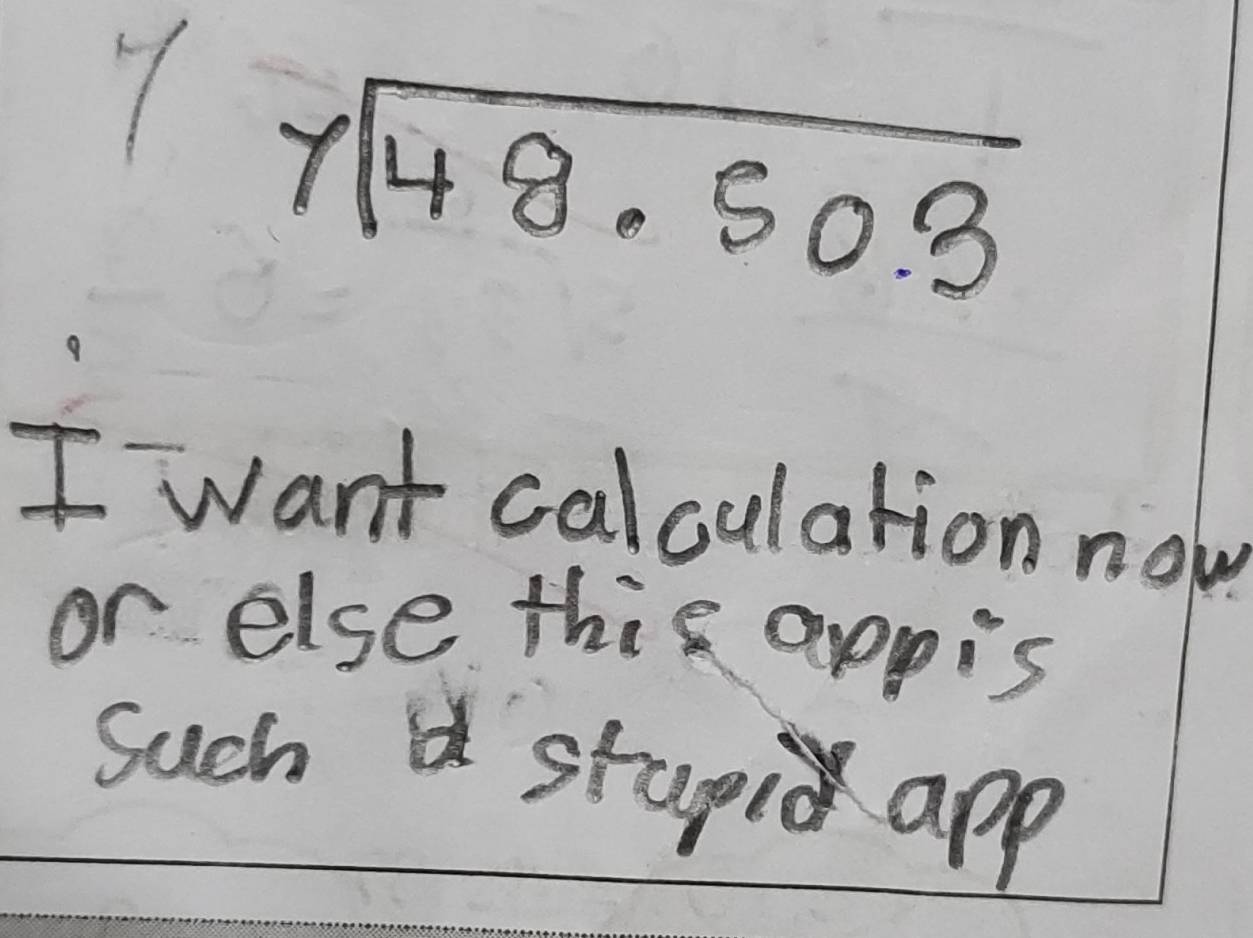 7
7 48.503
I want calculation now
or else this app is
such a stupid app